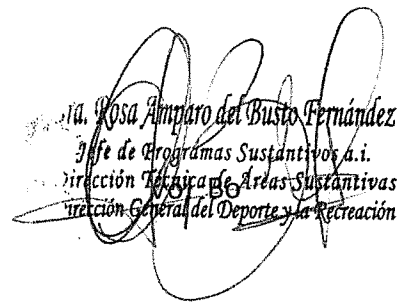 Rosa Amparo del Busto Fernández
Jefe de Programas Sustantivos a.i.
Dirección Técnica de Áreas Sustantivas
Vo. Bo
Dirección General del Deporte y la Recreación